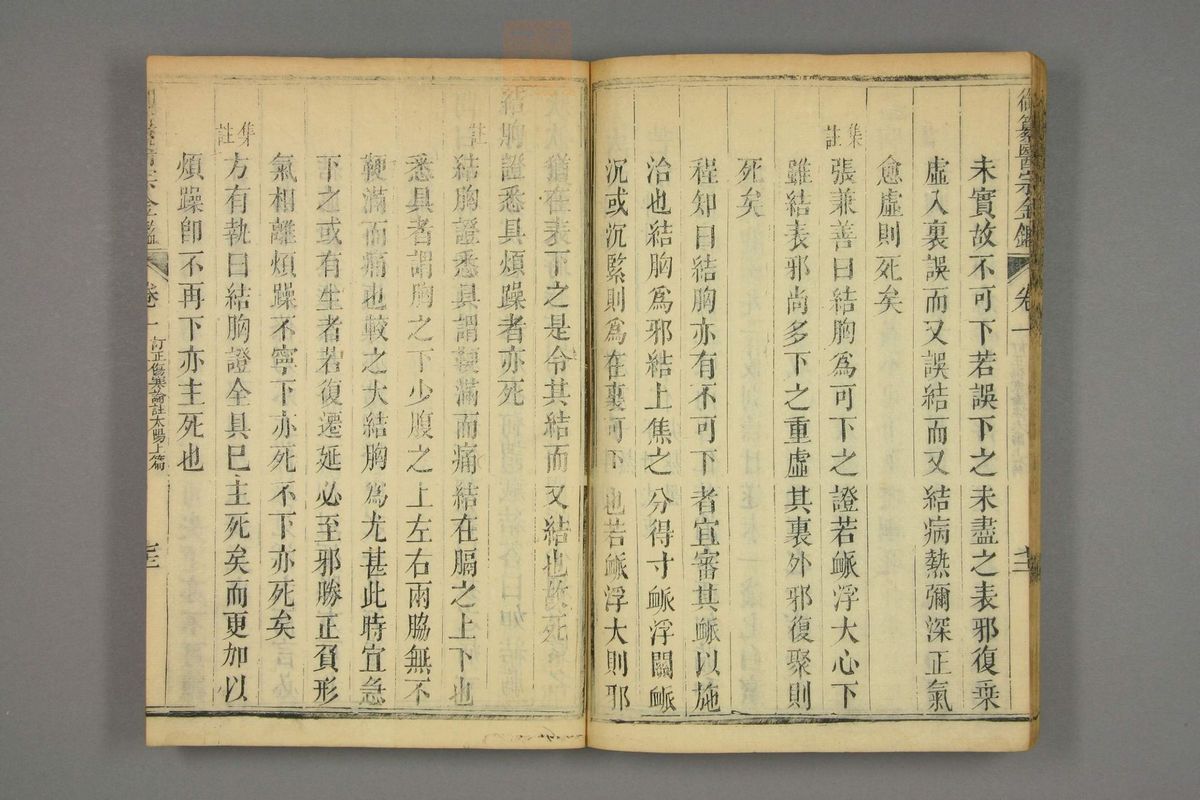 御纂醫宗金鑑
卷一
未實故不可下若誤下之未盡之表邪復乘
虛入裏誤而又誤結而又結病熱彌深正氣
愈虛則死矣
集註
張兼善曰結胸爲可下之證若𧖴浮大心下
雖結表邪尚多下之重虛其裏外邪復聚則
死矣
程知曰結胸亦有不可下者宜審其𧖴以施
治也結胸爲邪結上焦之分得寸𧖴浮關𧖴
沉或沉緊則爲在裏可下也若𧖴浮大則邪
猶在表下之是令其結而又結也
結胸證悉具煩躁者亦死
註
結胸證悉具謂鞕滿而痛結在膈之上下也
悉具者謂胸之下少腹之上左右兩脇無不
鞕滿而痛也較之大結胸爲尤甚此時宜急
下之或有生者若復遷延必至邪勝正負形
氣相離煩躁不寧下亦死不下亦死矣
集註
方有執曰結胸證全具已主死矣而更加以
煩躁卽不再下亦主死也
卷一
訂正傷寒論註太陽上篇